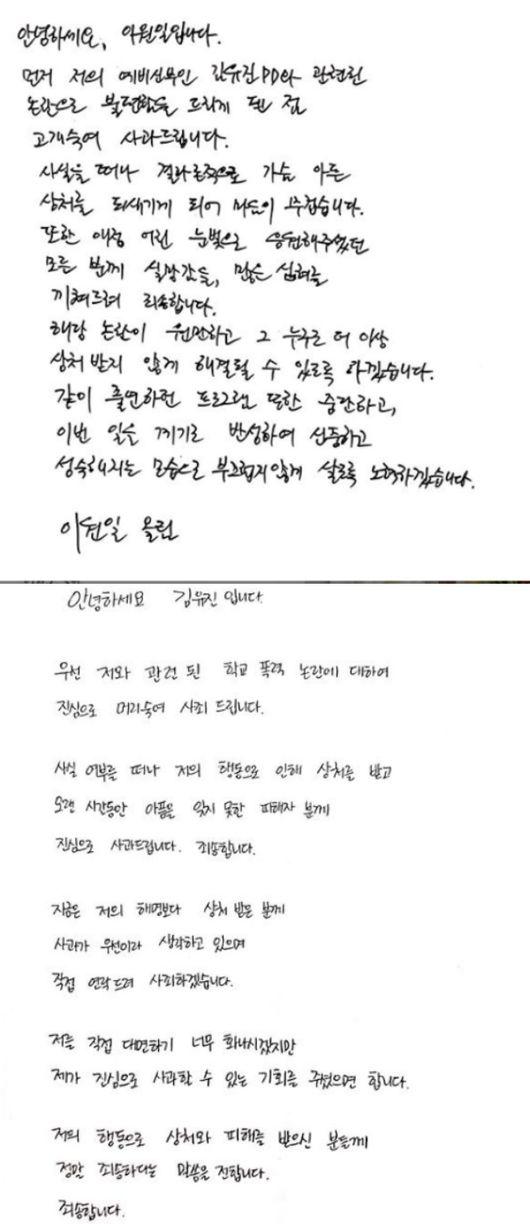 안녕하세요, 이원일입니다.
먼저 저의 예비신부인 김유진PD와 관련된
논란으로 불편함을 드리게 된 점
고개숙여 사과드립니다.
사실을 떠나 결과론적으로 가슴 아픈
상처를 되새기게 되어 마음이 무겁습니다.
또한 애정 어린 눈빛으로 응원해주셨던
모든 분께 실망감을, 많은 심려를
끼쳐드려 죄송합니다.
해당 논란이 원만하고 그 누구도 더 이상
상처 받지 않게 해결될 수 있도록 하겠습니다.
같이 출연하던 프로그램 또한 중단하고,
이번 일을 계기로 반성하여 신중하고
성숙해지는 모습으로 부끄럽지않게 살도록 노력하겠습니다.
이원일 올림
안녕하세요 김유진 입니다
우선 저와 관련 된 학교 폭력 논란에 대하여
진심으로 머리숙여 사죄 드립니다.
사실 여부를 떠나 저의 행동으로 인해 상처를 받고
오랜 시간동안 아픔을 잊지 못한 피해자 분께
진심으로 사과드립니다. 죄송합니다.
지금은 저의 해명보다 상처 받은 분께
사과가 우선이라 생각하고 있으며
직접 연락드려 사죄하겠습니다.
저를 직접 대면하기 너무 화나시겠지만
제가 진심으로 사과할 수 있는 기회를 주셨으면 합니다.
저의 행동으로 상처와 피해를 받으신 분들께
정말 죄송하다는 말씀을 전합니다.
죄송합니다.